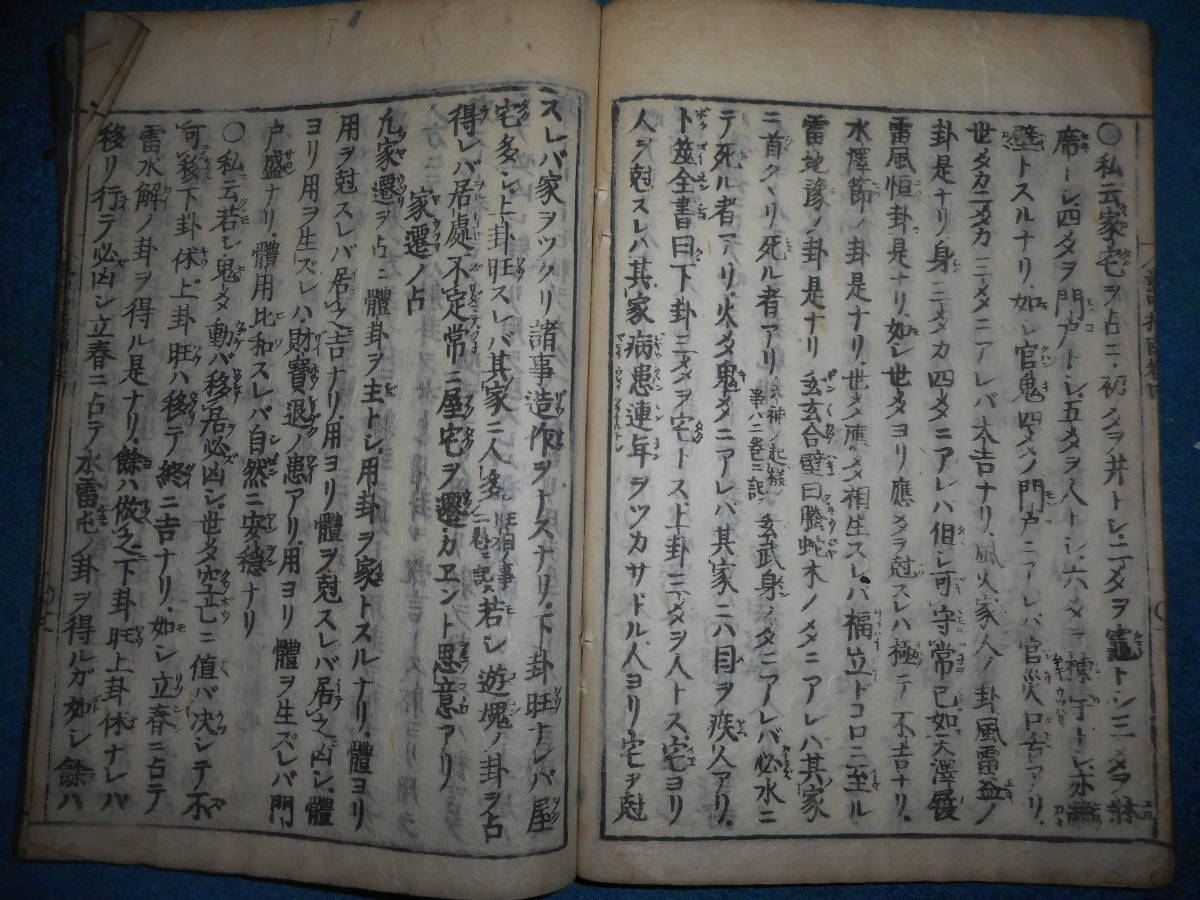 ○私云家宅ヲ占ニ初爻ヲ井トシ二爻ヲ竈トシ三爻ヲ牀
席トシ四爻ヲ門戸トシ五爻ヲ人トシ六爻ヲ棟宇トシ亦
壁トスルナリ如シ官鬼四爻ノ門戸ニアレバ官災口舌アリ
世爻カ二爻カ三爻ニアレバ大吉ナリ風火家人ノ卦風雷益ノ
卦是ナリ身三爻カ四爻ニアレバ但シ可守常已如天澤履
雷風恒卦是ナリ如シ世爻ヨリ應爻ヲ尅スレハ極テ不吉ナリ
水澤節ノ卦是ナリ世爻應爻相生スレバ福立ドコロニ至ル
雷地豫ノ卦是ナリ 玄玄合璧曰騰蛇木ノ爻ニアレハ其家
ニ首クヽリ死ル者アリ六神ノ起様ノ事ハ二巻ニ記 玄武身ノ爻ニアレバ必水ニ
テ死ル者アリ火爻鬼爻ニアレバ其家ニハ目ヲ疾人アリ
卜筮全書曰下卦三爻ヲ宅トス上卦三爻ヲ人トス宅ヨリ
人ヲ尅スレハ其家病患連年ヲツカサドル人ヨリ宅ヲ尅
スレバ家ヲツクリ諸事造作ヲナスナリ下卦旺ナレバ屋
宅多シ上卦旺スレバ其家ニ人多シ旺相ノ事一巻ニ記ス若シ遊魂ノ卦ヲ占
得レバ居處不定常ニ屋宅ヲ遷カヱント思意アリ
家遷ノ占
凢家遷ヲ占ニ體卦ヲ主トシ用卦ヲ家トスルナリ體ヨリ
用ヲ尅スレバ居之吉ナリ用ヨリ體ヲ尅スレバ居之凶シ體
ヨリ用ヲ生ズレハ財寶退ノ患アリ用ヨリ體ヲ生ズレバ門
戸盛ナリ體用比和スレバ自然ニ安穏ナリ
○私云若シ鬼爻動バ移居必凶シ世爻空亡ニ値バ决シテ不
可移下卦休上卦旺ハ移テ終ニ吉ナリ如シ立春ニ占テ
雷水解ノ卦ヲ得ル是ナリ餘ハ倣之下卦旺上卦休ナレバ
移リ行テ必凶シ立春ニ占テ水雷屯ノ卦ヲ得ルガ如シ餘ハ